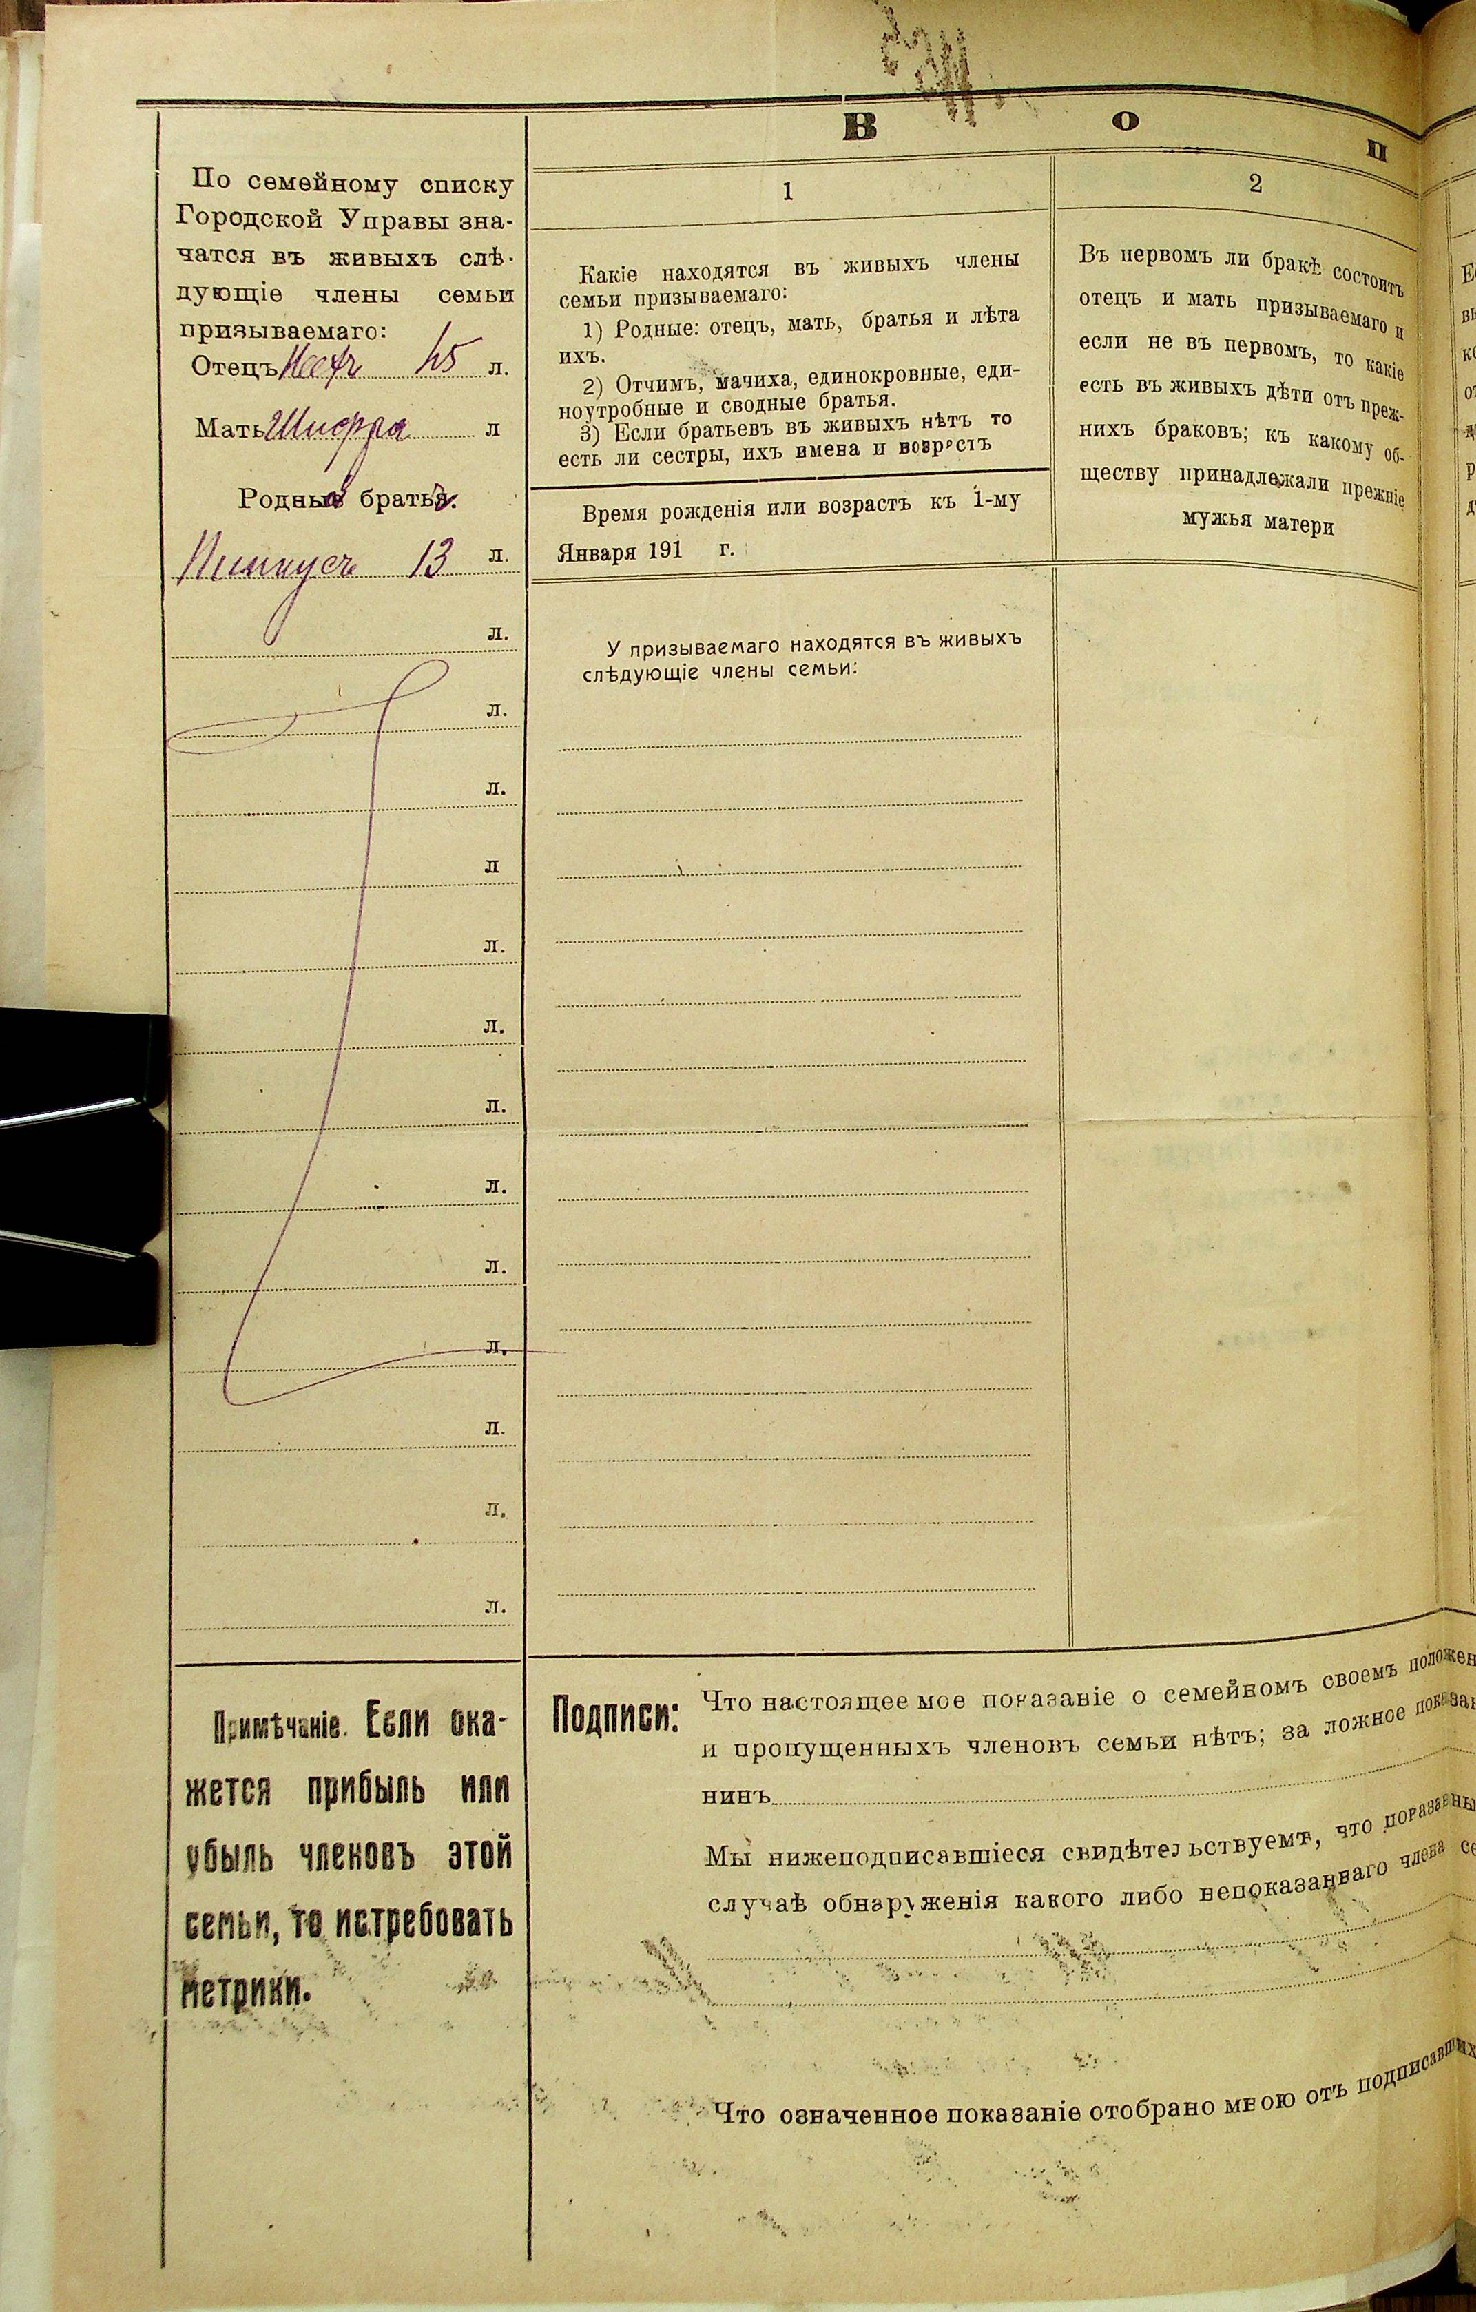 В о п
По семейному списку
Городской Управы зна-
чатся въ живыхъ слѣ-
дующіе члены семьи
призываемаго:
Отецъ 45 л.
Мать Шифра л
Родные братья.
Пинкусъ 13 л.
л.
л.
л.
л
л.
л.
л.
л.
л.
л.
л.
л.
л.
Примѣчаніе. Если ока-
жется прибыль или
убыль членовъ этой
семьи, то истребовать
метрики.
1
Какіе находятся въ живыхъ члены
семьи призываемаго:
1) Родные: отецъ, мать, братья и лѣта
ихъ.
2) Отчимъ, мачиха, единокровные, еди-
ноутробные и сводные братья.
3) Если братьевъ въ живыхъ нѣтъ то
есть ли сестры, ихъ имена и возрастъ
Время рожденія или возрастъ къ 1-му
Января 191 г.
У призываемаго находятся въ живыхъ
слѣдующіе члены семьи:
2
Въ первомъ ли бракѣ состоитъ
отецъ и мать призываемаго и
если не въ первомъ, то какіе
есть въ живыхъ дѣти отъ преж-
нихъ браковъ; къ какому об-
ществу принадлежали прежніе
мужья матери
Подписи:
Что настоящее мое показаніе о семейномъ своемъ положен
и пропущенныхъ членовъ семьи нѣтъ; за ложное показан
нинъ
Мы нижеподписавшіеся свидѣтельствуемъ, что показанны
случаѣ обнаруженія какого либо непоказаннаго члена се
Что означенное показаніе отобрано мною отъ подписавшихъ